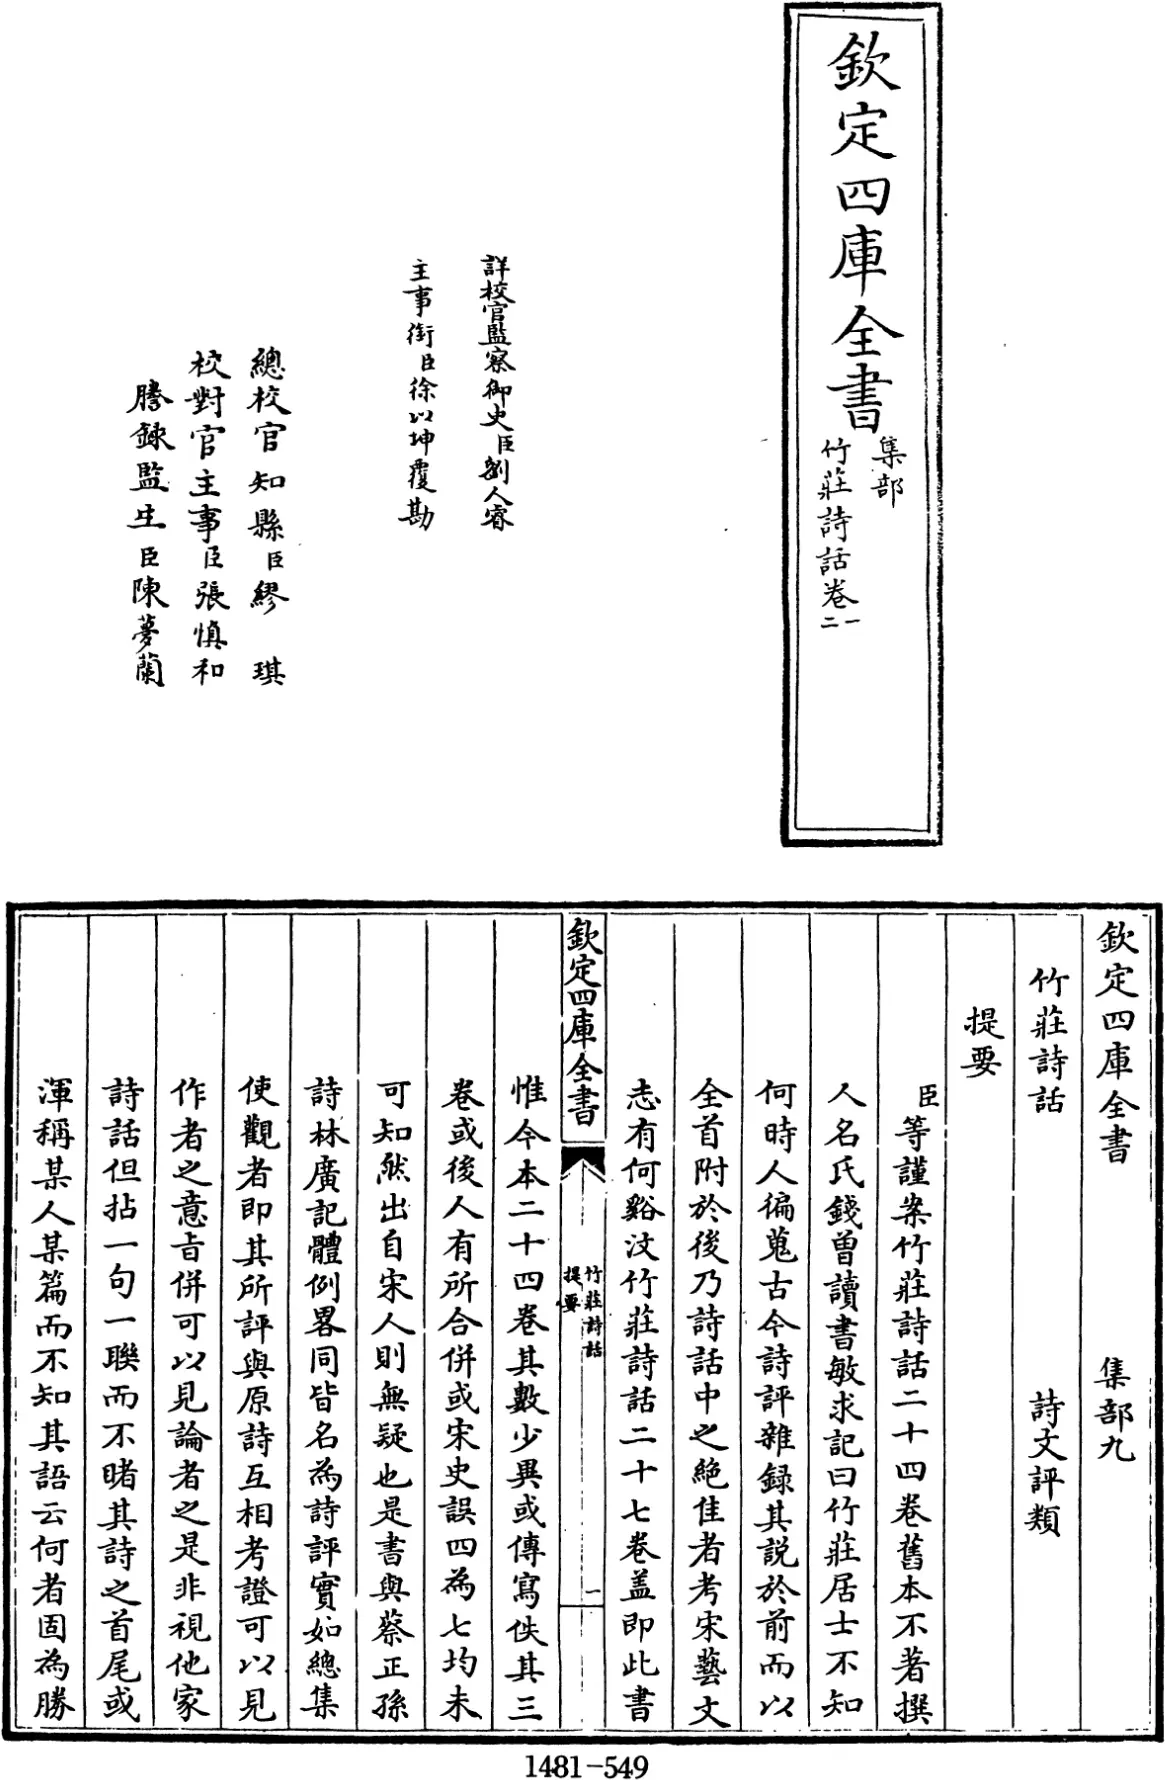 欽定四庫全書
集部
竹莊詩話卷一
二
詳校官監察御史臣劉人睿
主事銜臣徐以坤覆勘
總校官知縣臣繆琪
校對官主事臣張慎和
謄錄監生臣陳夢蘭
欽定四庫全書 集部九
竹莊詩話 詩文評類
提要
臣等謹案竹莊詩話二十四卷舊本不著撰
人名氏錢曾讀書敏求記曰竹莊居士不知
何時人徧蒐古今詩評雜録其説於前而以
全首附於後乃詩話中之絶佳者考宋藝文
志有何谿汶竹莊詩話二十七卷蓋即此書
欽定四庫全書
竹莊詩話
提要
一
惟今本二十四卷其數少異或傳寫佚其三
卷或後人有所合併或宋史誤四為七均未
可知然出自宋人則無疑也是書與蔡正孫
詩林廣記體例畧同皆名為詩評實如總集
使觀者即其所評與原詩互相考證可以見
作者之意旨併可以見論者之是非視他家
詩話但拈一句一聯而不睹其詩之首尾或
渾稱某人某篇而不知其語云何者固為勝
1481-549